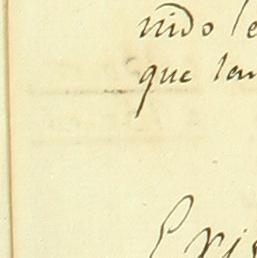 nido le
que ten
Exis